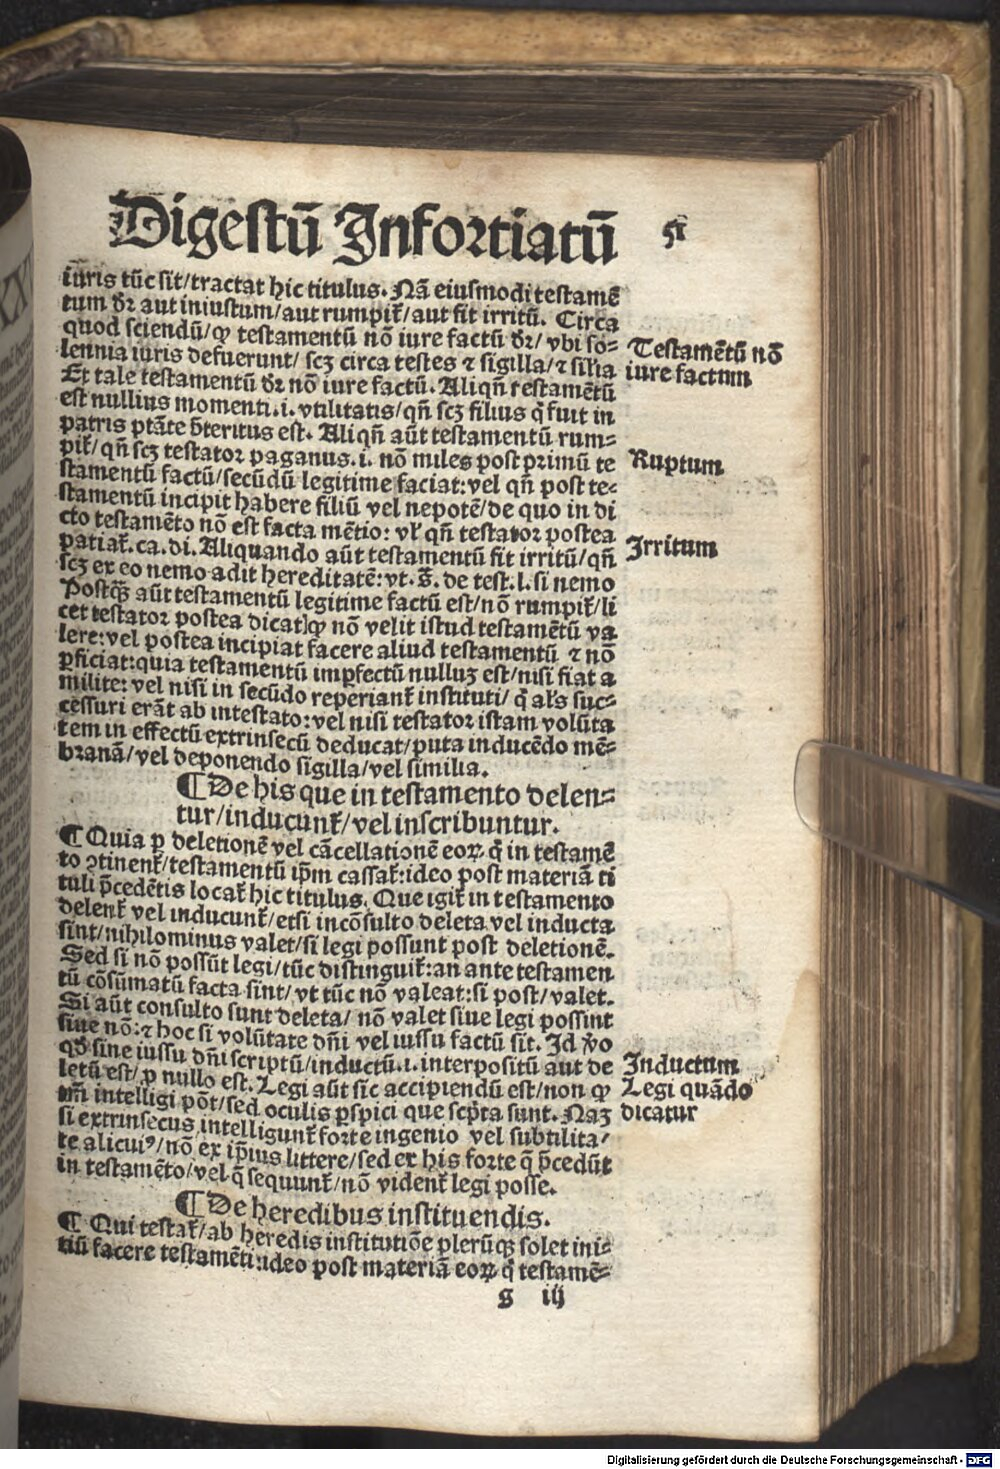 Digestū Infortiatū
iuris tūc sit/tractat hic titulus. Nā eiusmodi testamē
tum dr̄ aut iniustum/aut rumpit̄/aut fit irritū. Circa
quod sciendū/ꝙ testamentū nō iure factū dr̄/vbi so-
lennia iuris defuerunt/scꝫ circa testes ⁊ sigilla/⁊ silia
Et tale testamentū dr̄ nō iure factū. Aliqn̄ testamētū
est nullius momenti.i.vtilitatis/qn̄ scꝫ filius q̄ fuit in
patris ptāte p̄teritus est. Aliqn̄ aūt testamentū rum-
pit̄/qn̄ scꝫ testator paganus.i.nō miles post primū te
stamentū factū/secūdū legitime faciat:vel qn̄ post te-
stamentū incipit habere filiū vel nepotē/de quo in di
cto testamēto nō est facta mētio: vl̄ qn̄ testator postea
patiat̄.ca.di.Aliquando aūt testamentū fit irritū/qn̄
scꝫ ex eo nemo adit hereditatē:vt.s̄.de test.l.si nemo
Postꝙ̄ aūt testamentū legitime factū est/nō rumpit̄/li
cet testator postea dicat]ꝙ nō velit istud testamētū va
lere:vel postea incipiat facere aliud testamentū ⁊ nō
ꝑficiat:quia testamentū imꝑfectū nulluꝫ est/nisi fiat a
milite: vel nisi in secūdo reperiant̄ instituti/q̄ al's suc-
cessuri erāt ab intestato:vel nisi testator istam volūta
tem in effectū extrinsecū deducat/puta inducēdo mē-
branā/vel deponendo sigilla/vel similia.
¶De his que in testamento delen-
tur/inducunt̄/vel inscribuntur.
¶Quia ꝑ deletionē vel cācellationē eoꝝ q̄ in testamē
to ↄtinent̄/testamentū ip̄m cassat̄:ideo post materiā ti
tuli p̄cedētis locat̄ hic titulus. Que igit̄ in testamento
delent̄ vel inducunt̄/etsi incōsulto deleta vel inducta
sint/nihilominus valet/si legi possunt post deletionē.
Sed si nō possūt legi/tūc distinguit̄:an ante testamen
tū cōsūmatū facta sint/vt tūc nō valeat:si post/valet.
Si aūt consulto sunt deleta/nō valet siue legi possint
siue nō:⁊ hoc si volūtate dn̄i vel iussu factū sit. Id v̄o
qd̄ sine iussu dn̄i scriptū/inductū.i.interpositū aut de
letū est/ꝑ nullo est. Legi aūt sic accipiendū est/non ꝙ
tm̄ intelligi pōt/sed oculis ꝑspici que scp̄ta sunt. Naꝫ
si extrinsecus intelligunt̄ forte ingenio vel subtilita/
te alicuiꝰ/nō ex ip̄ius littere/sed ex his forte q̄ p̄cedūt
in testamēto/vel q̄ sequunt̄/nō vident̄ legi posse.
¶De heredibus instituendis.
¶Qui testat̄/ab heredis institutiōe plerūqꝫ solet ini-
tiū facere testamēti:ideo post materiā eoꝝ q̄ testamē-
s iij
Testamētū nō
iure factum
Ruptum
Irritum
Inductum
Legi quādo
dicatur
Digitalisierung gefördert durch die Deutsche Forschungsgemeinschaft - DFG